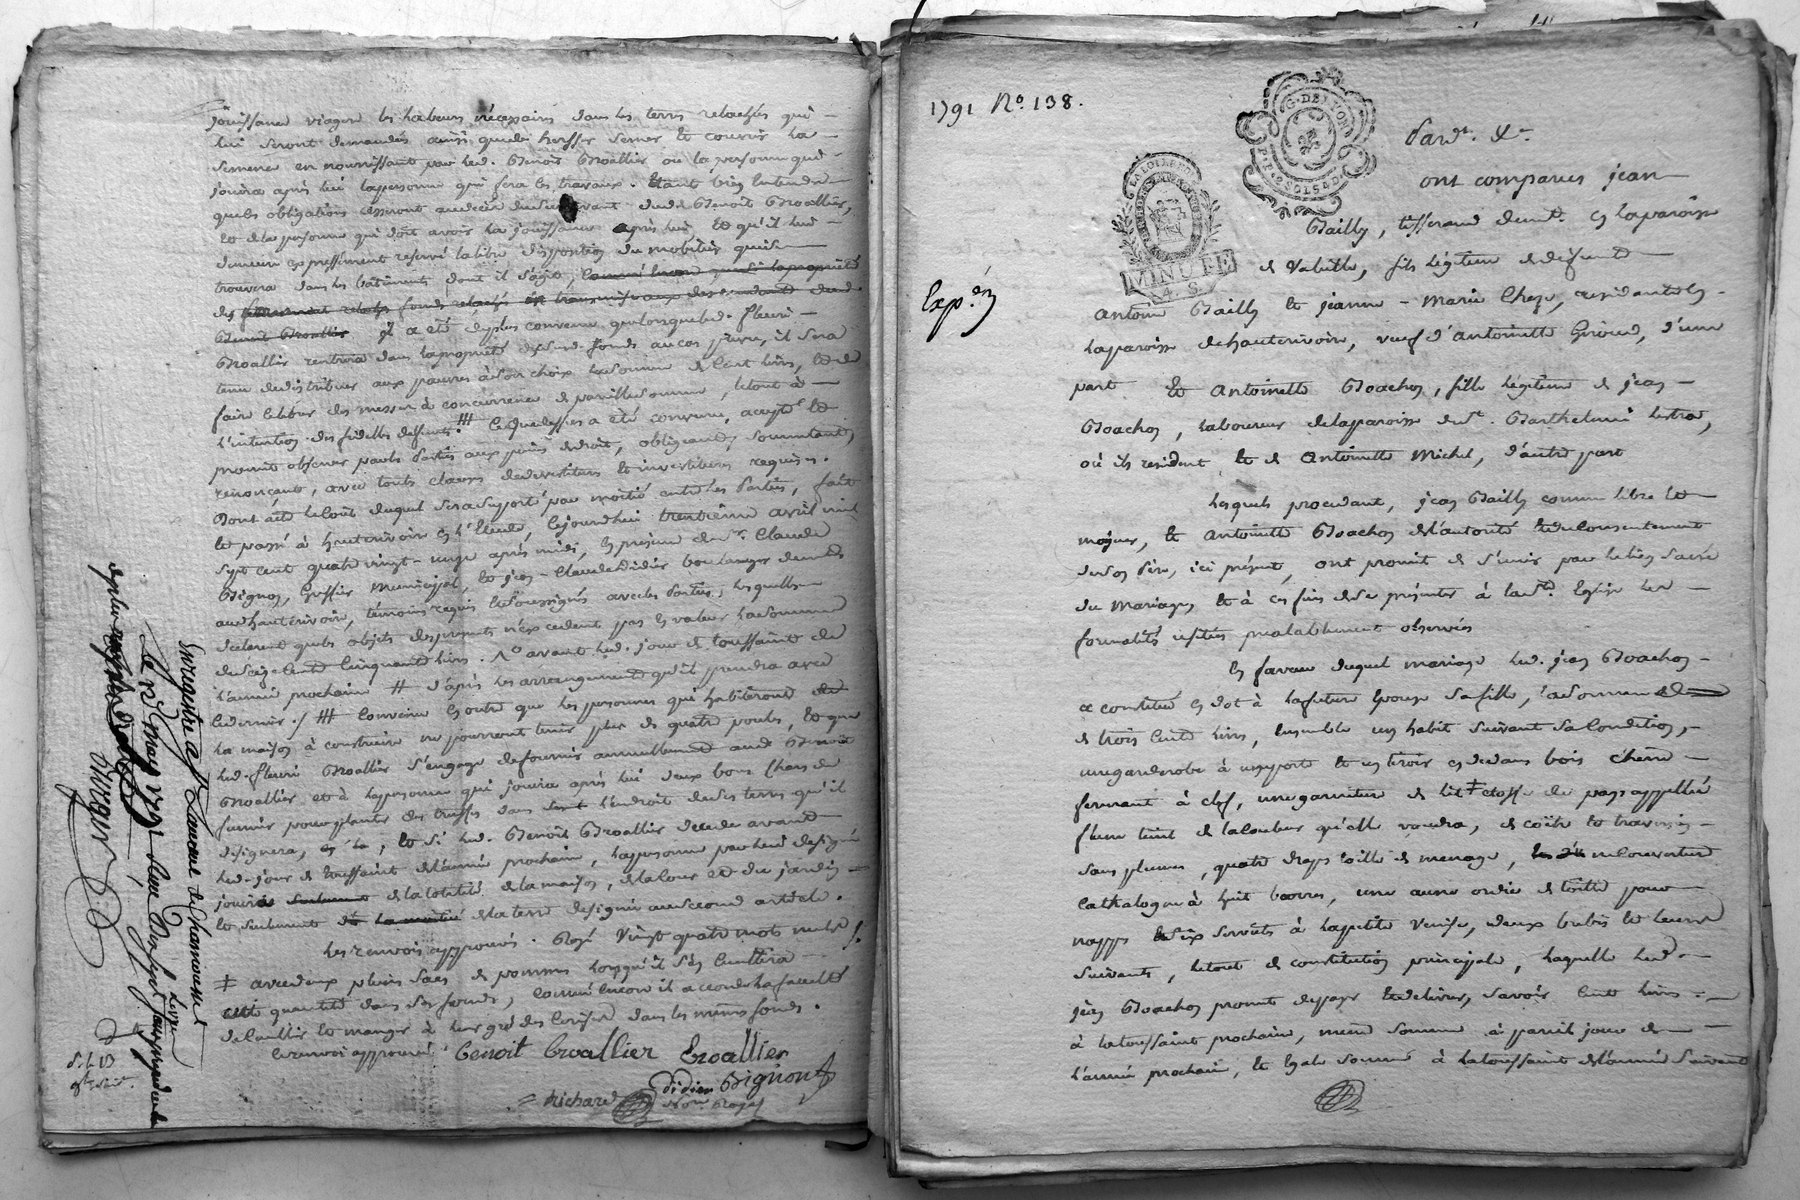 jouissance viagere les labeurs nécessaires dans les terres relachés qui
lui seront demandés ainsi que de herser semer et couvrir la
semence en nourrissant par led. Benoit Broallier ou la personne qui
jouira après lui la personne qui fera les travaux. Etant bien entendu
que les obligations cesseront au decès du survivant dud. Benoit Broallier,
et de la personne qui doit avoir la jouissance après lui, et qu'il lui
demeure expressément reservé la libre disposition du mobilier qui se
trouvera dans les bâtiments dont il s'agit,
il a été de plus convenu, que lorsque led. fleuri
Broallier rentrera dans la propriété desd. fonds au cas prevu, il sera
tenu de distribuer aux pauvres à son choix la somme de cent livres, et de
faire celebrer des messes à concurrence de pareille somme, le tout à
l'intention des fidelles deffunts. Ce que dessus a été convenu, accepté et
promis observer par les Parties aux peines de droit, obligeants, soumettants,
renonçants, avec toutes clauses de devestiture et investiture requises.
Dont acte le coût duquel sera suporté par moitié entre les Parties, fait
et passé à hauterivoire en l'étude, cejourd'hui trentième avril mil
sept cent quatre vingt-onze après midi, en présence de sr. Claude
Bignon, Greffier Municipal, et jean-Claude Didier boulanger demts.
aud. hauterivoire, témoins requis et soussignés avec les Parties, lesquelles
declarent que les objets des presentes n'excedent pas en valeur la somme
de seize cents cinquante livres. avant led. jour de toussaints de
l'année prochaine # d'après les arrangements qu'il prendra avec
ce dernier. /# Convenu en outre que les personnes qui habiteront
la maison à construire ne pourront tenir plus de quatre poules, et que
led. fleuri Broallier s'engage de fournir annuellement aud. Benoit
Broallier et à la personne qui jouira après lui deux bons chars de
fumier pour planter des truffes dans l'endroit desd. terres qu'il
designera, et si led. Benoit Broallier decede avant
led. jour de toussaint de l'année prochaine, la personne par lui designé
jouira de la totalité de la maison, de la cour et du jardin
et seulement de la terre designée au second article.
Les renvois approuvés. Rayé vingt quatre mots nuls
‡ avec deux pleins sacs de pommes lorsqu'il s'en cueillira
cette quantité dans ses fonds, comme encore il accorde la faculté
de cueillir et manger à leur gré des cerises dans les mêmes fonds.
le renvoi approuvé. Benoit Broallier Broallier
Richard didier Bignon
Nore. Royal
Enregistré à St. Laurent de Chamousset
le 12 mai 1791
1791 No. 138.
G. DE LYON
P.P. 2 SOLS 8 D
LA LOI LE ROI
MINUTE
4. S.
Expén
Pardt. &c
ont comparus jean
Bailly, tisserand demt. en la paroisse
de Valeille, fils légitime de deffunt
Antoine Bailly et jeanne-Marie Cheze, residante en
la paroisse de hauterivoire, veuf d'Antoinette Giroud, d'une
part et Antoinette Boachon, fille légitime de jean
Boachon, laboureur de la paroisse de St. Barthelemi lestra,
où ils resident et de Antoinette Michel, d'autre part
Lesquels procedant, jean Bailly comme libre et
majeur, et Antoinette Boachon de l'autorité et du consentement
de son Père, ici présent, ont promit de s'unir par le lien sacré
du Mariage, et à ces fins de se présenter à la Ste. Eglise les
formalités usitées prealablement observées
En faveur duquel mariage led. jean Boachon
a constitué en dot à la future Epouse sa fille, la somme
de trois cents livres, ensemble un habit suivant sa condition,
une garderobe à une porte et un tiroir en dedans bois chêne
fermant à clef, une garniture de lit ‡ etoffe du pays appellée
fleuret teint de la couleur qu'elle voudra, de coëtre et traversin
sans plumes, quatre draps toille de menage, une couverture
Cathalogne à huit barres, une aune ordie de toille pour
nappe et six serviettes à la petite Venise, deux brebis et leurs
suivants, le tout de constitution principale, laquelle led.
jean Boachon promet de payer et delivrer, savoir cent livres
à la toussaint prochaine, même somme à pareil jour de
l'année prochaine, et egale somme à la toussaint de l'année suivante